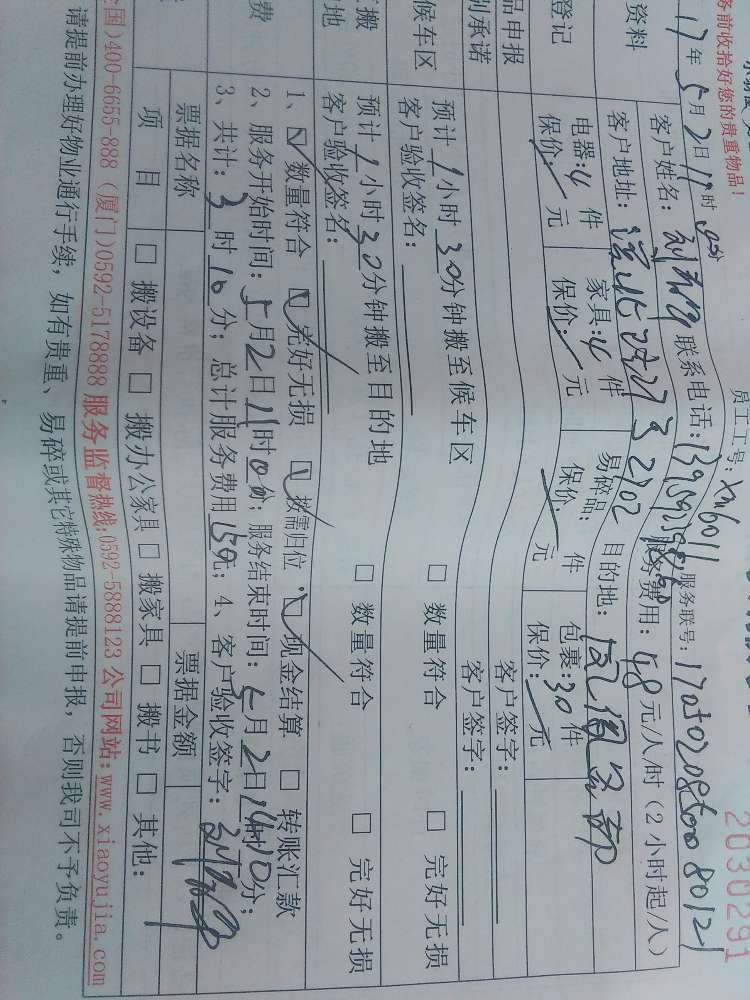 务前收拾好您的贵重物品！
员工工号：XM6011 服务联号：
2030291
17年5月2日11时0分
资料
客户姓名： 联系电话： 服务费用：48元/人/时（2小时起/人）
客户地址： 2702 目的地：
登记
电器：4件 家具：4件 易碎品： 件 包裹：30件
保价：/元 保价：/元 保价：/元 保价：/元
品申报
客户签字：
别承诺
客户签字：
候车区
预计1小时30分钟搬至候车区 □ 数量符合 □ 完好无损
客户验收签名：
搬
地
预计1小时30分钟搬至目的地 □ 数量符合 □ 完好无损
客户验收签名：
费
1、☑ 数量符合 ☑ 完好无损 ☑ 按需归位 ☑ 现金结算 □ 转账汇款
2、服务开始时间：5月2日11时0分；服务结束时间：5月2日14时10分；
3、共计：3时10分；总计服务费用150元；4、客户验收签字：
票据名称 票据金额
项 目 □ 搬设备 □ 搬办公家具 □ 搬家具 □ 搬书 □ 其他：
国)400-6655-888（厦门)0592-5178888 服务监督热线:0592-5888123 公司网站:www.xiaoyujia.com
请提前办理好物业通行手续，如有贵重、易碎或其它特殊物品请提前申报，否则我司不予负责。